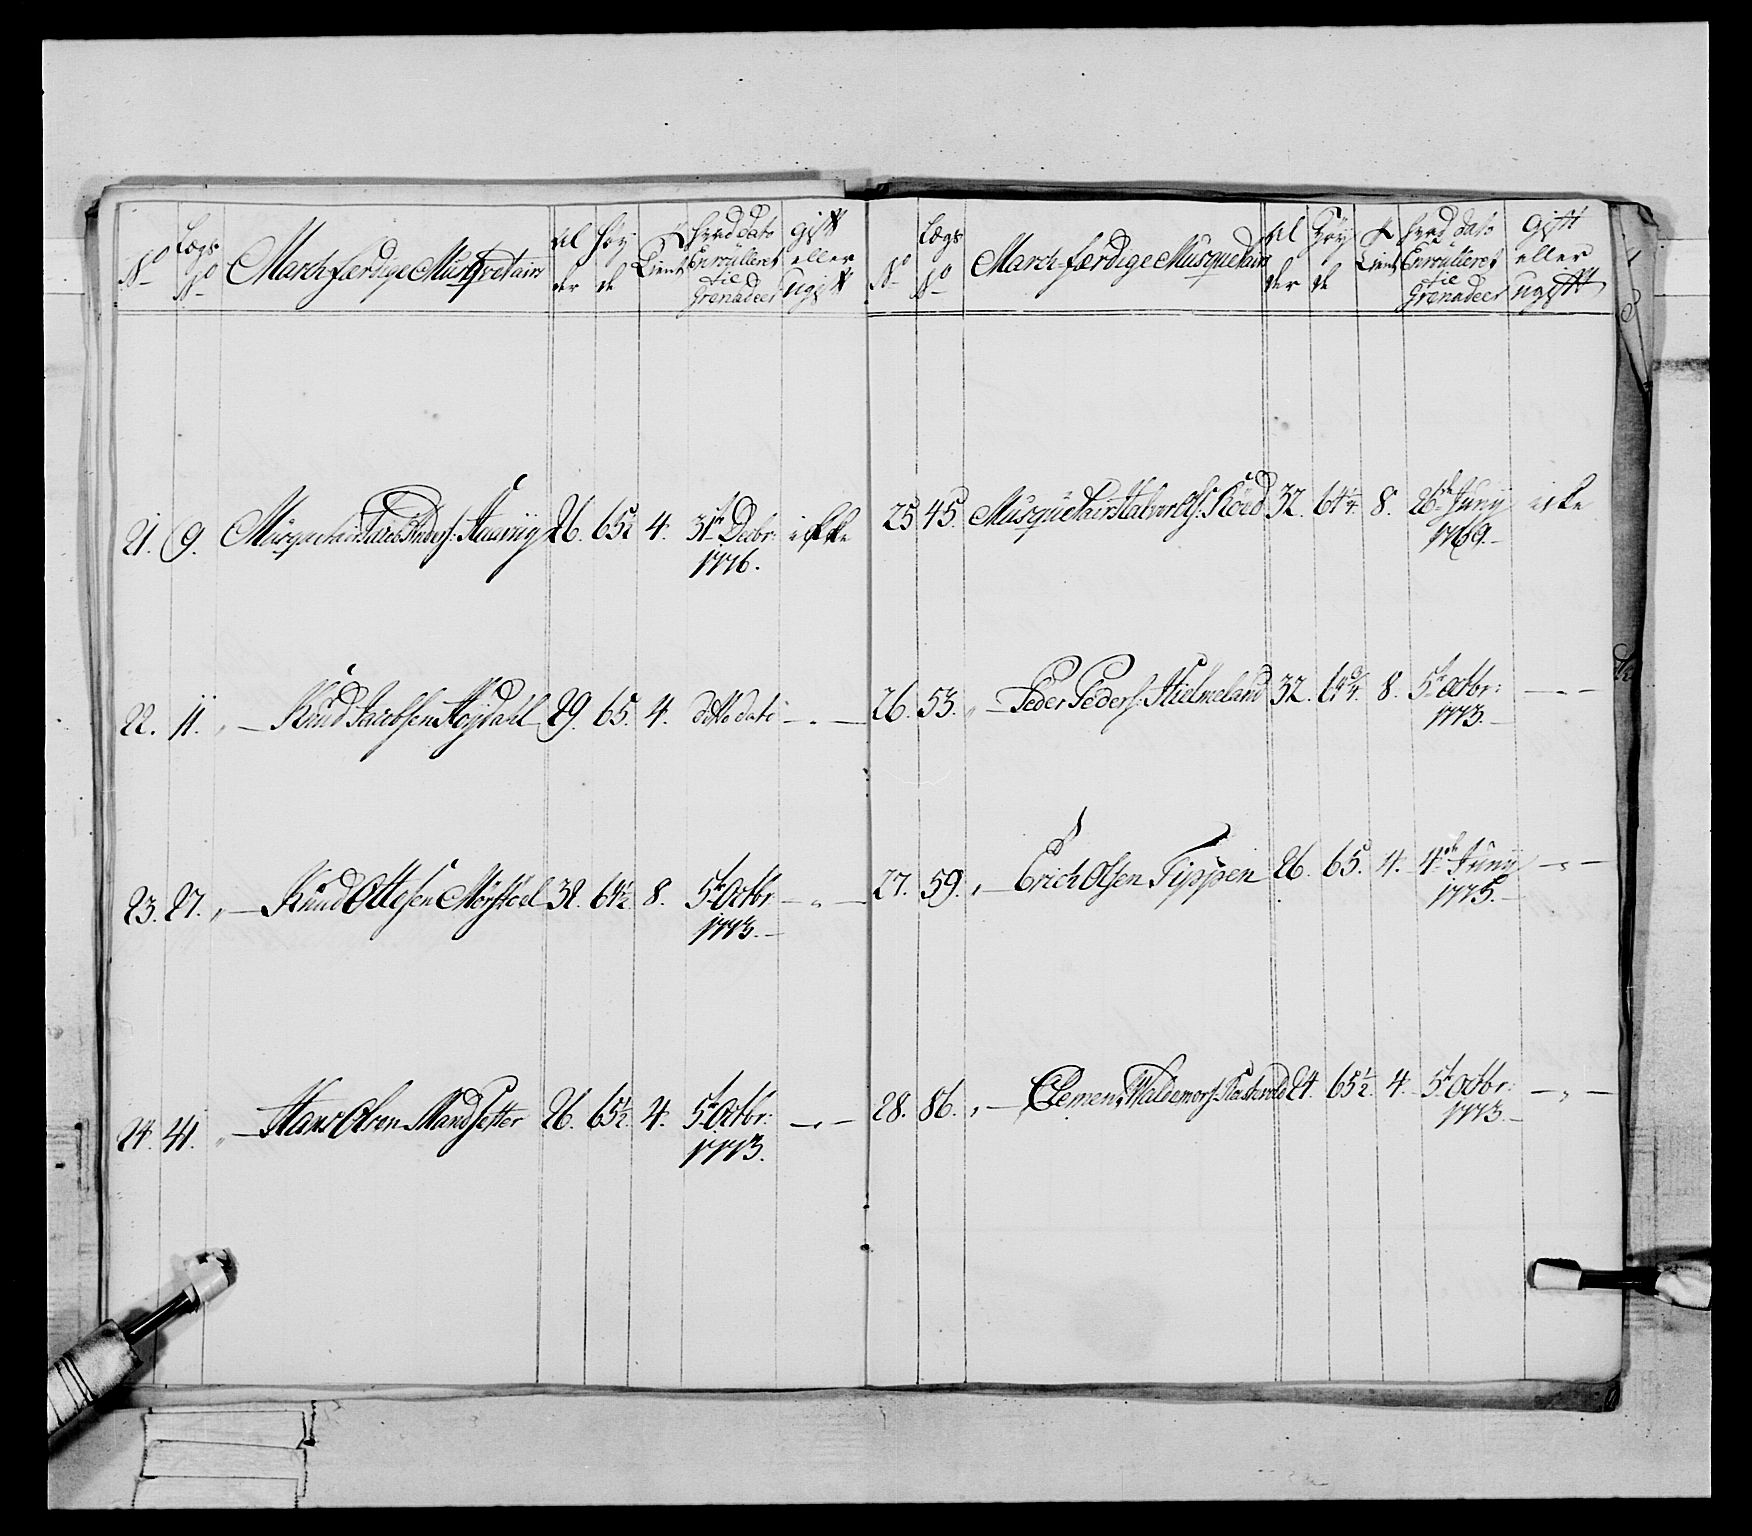 No Lægs No March-færdige Musqvetairer Alder Høyde Tient hvad dato Enroulleret til Grenadeer gift eller ugift
21. 9. Musqueteer Jacob Anders: 26. 65½ 4. 31te Decbr: ikke
1776.
22. 11. " — Knud Jacobsen Høydahl 29. 65. 4. ditto dato — " —
23. 27. " — Knud Ottesen Mørstøel 32. 64½ 8. 5te Octbr — " —
1773. —
24. 41. " — Hans Olsen Mandsetter 26. 65½ 4. 5te Octbr: — " —
1773.
No Lægs No March-færdige Musquetairer Alder Høyde Tient hvad dato Enroulleret til Grenadeer gift eller ugift
25 45. Musquetair Halvor Ols: Röed 32. 64¼. 8. 26de Junij ikke
1769. —
26. 53. " — Peder Peders: Hielmeland 32. 64¾. 8. 5te Octbr: — " —
1773. —
27. 59. " — Erich Olsen Tippen 26. 65. 4. 4de Junij — " —
1775. —
28. 86. " — Clemen Woldemors: 24. 65½. 4. 5te Octbr: — " —
1773. —